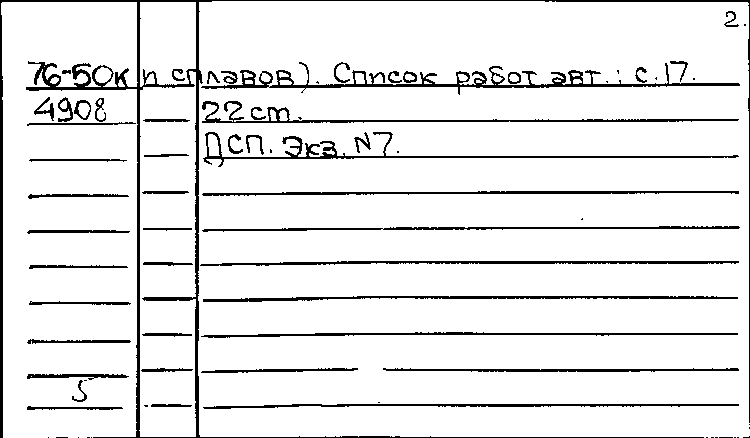 2.
76-50к и сплавов). Список работ авт.: с.17.
4908 22 cm.
ДСП. Экз. N7.
5